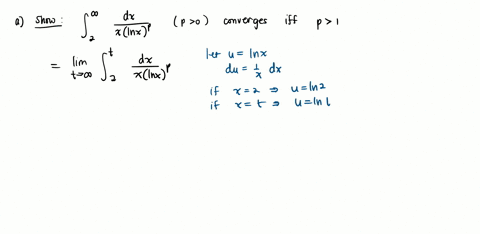 a) Show: ∫₂^∞ dx / x(lnx)^p (p>0) converges iff p > 1
= lim t→∞ ∫₂^t dx / x(lnx)^p
let u = lnx
du = 1/x dx
if x = 2 ⇒ u = ln2
if x = t ⇒ u = ln